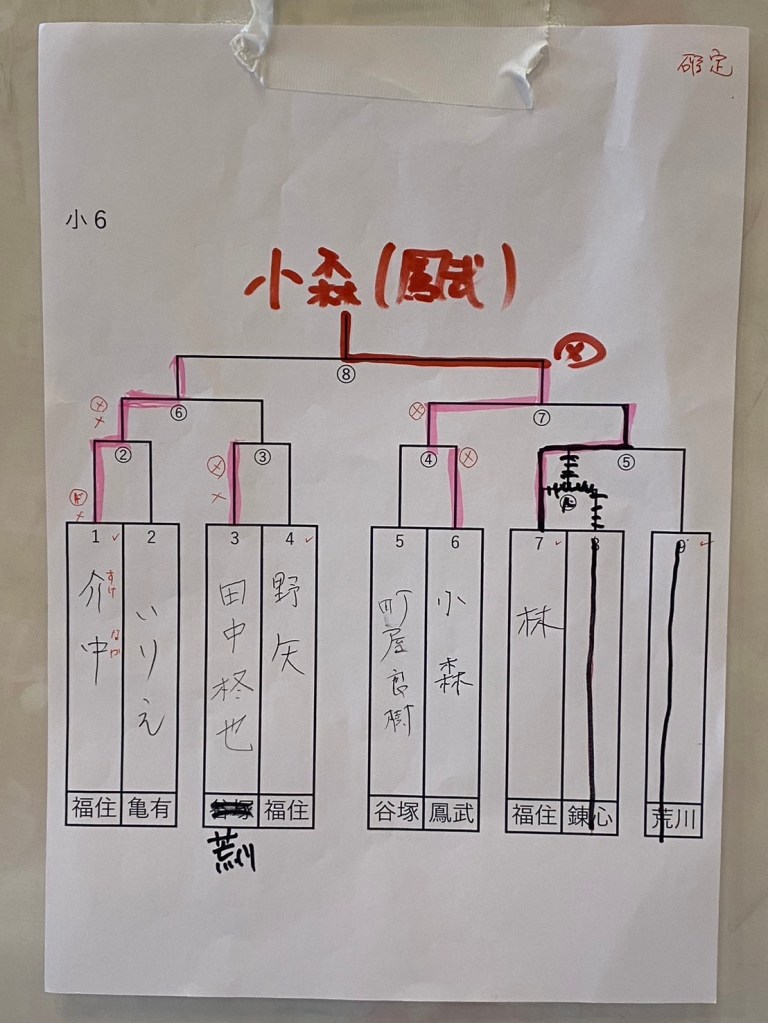 確定
小6
小森(鳳武)
⑧
⑥
⑦
②
③
④
⑤
1 2 3 4 5 6 7 8 9
介中
すけ
なか
いりえ
田中柊也
野矢
町屋良樹
小森
林
福住 亀有 谷塚 福住 谷塚 鳳武 福住 錬心 荒川
荒川